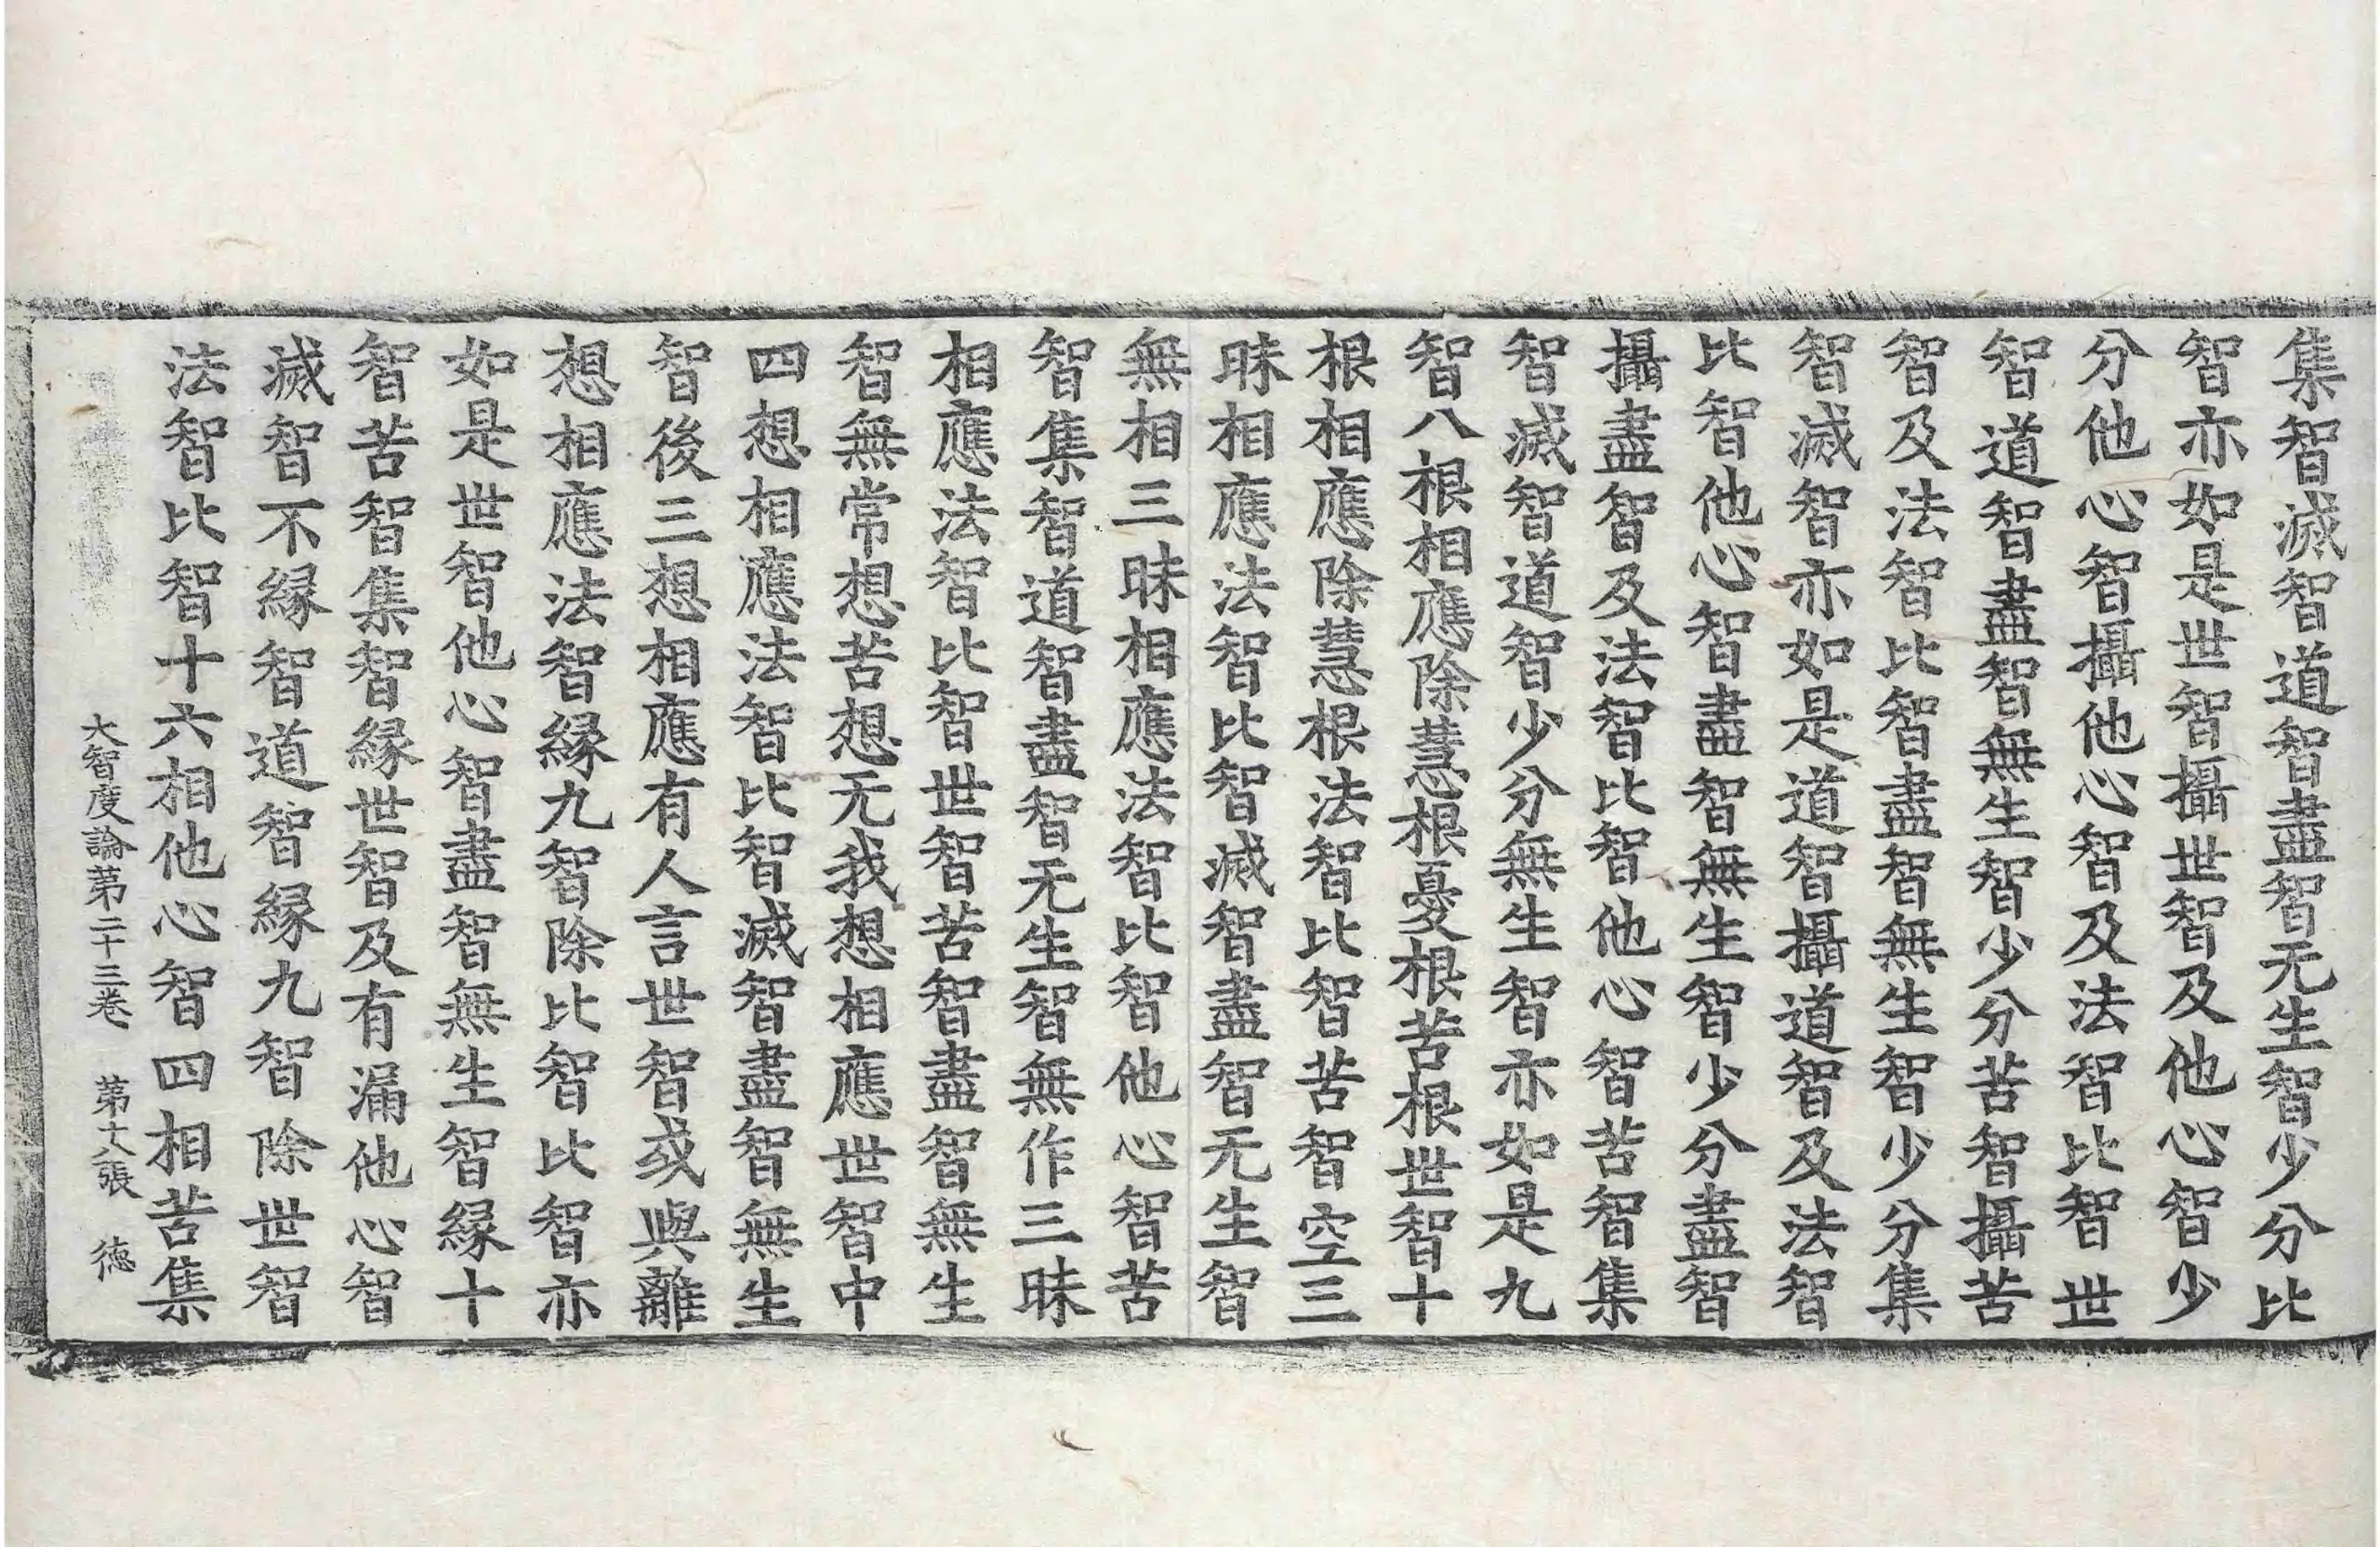 集智滅智道智盡智无生智少分比
智亦如是世智攝世智及他心智少
分他心智攝他心智及法智比智世
智道智盡智無生智少分苦智攝苦
智及法智比智盡智無生智少分集
智滅智亦如是道智攝道智及法智
比智他心智盡智無生智少分盡智
攝盡智及法智比智他心智苦智集
智滅智道智少分無生智亦如是九
智八根相應除慧根憂根苦根世智十
根相應除慧根法智比智苦智空三
昧相應法智比智滅智盡智无生智
無相三昧相應法智比智他心智苦
智集智道智盡智无生智無作三昧
相應法智比智世智苦智盡智無生
智無常想苦想无我想相應世智中
四想相應法智比智滅智盡智無生
智後三想相應有人言世智或與離
想相應法智緣九智除比智比智亦
如是世智他心智盡智無生智緣十
智苦智集智緣世智及有漏他心智
滅智不緣智道智緣九智除世智
法智比智十六相他心智四相苦集
大智度論第二十三卷 第十八張 德